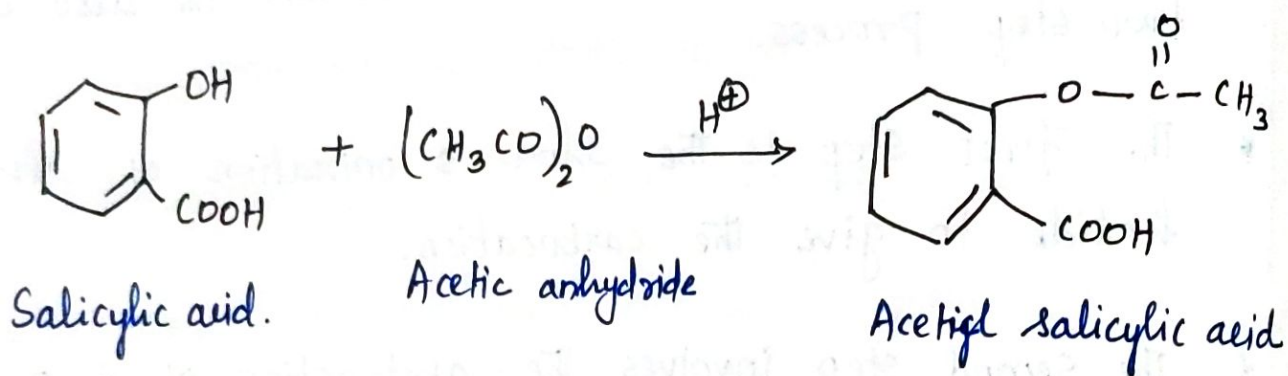 OH
COOH
+ (CH₃CO)₂O
H⊕
O
O — C – CH₃
COOH
Salicylic acid.
Acetic anhydride
Acetyl salicylic acid